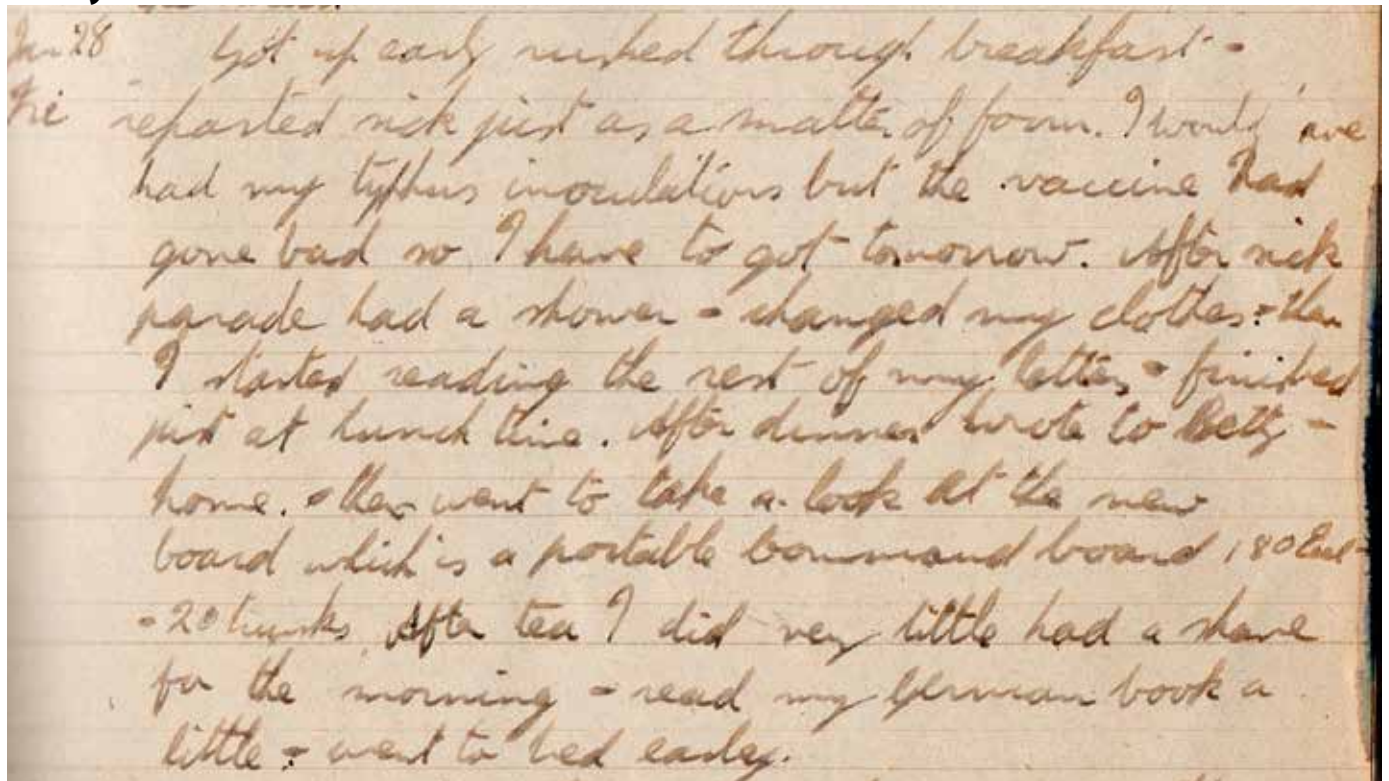 Jan 28 Got up early rushed through breakfast -
Fri reported sick just as a matter of form. I would 'ave
had my typhus inoculations but the vaccine had
gone bad so I have to got tomorrow. After sick
parade had a shower - changed my clothes - then
I started reading the rest of my letters - finished
just at lunch time. After dinner wrote to Betty -
home. - then went to take a look at the new
board which is a portable command board, 180
- 20 trunks. After tea I did very little had a shave
for the morning - read my German book a
little - went to bed earley.